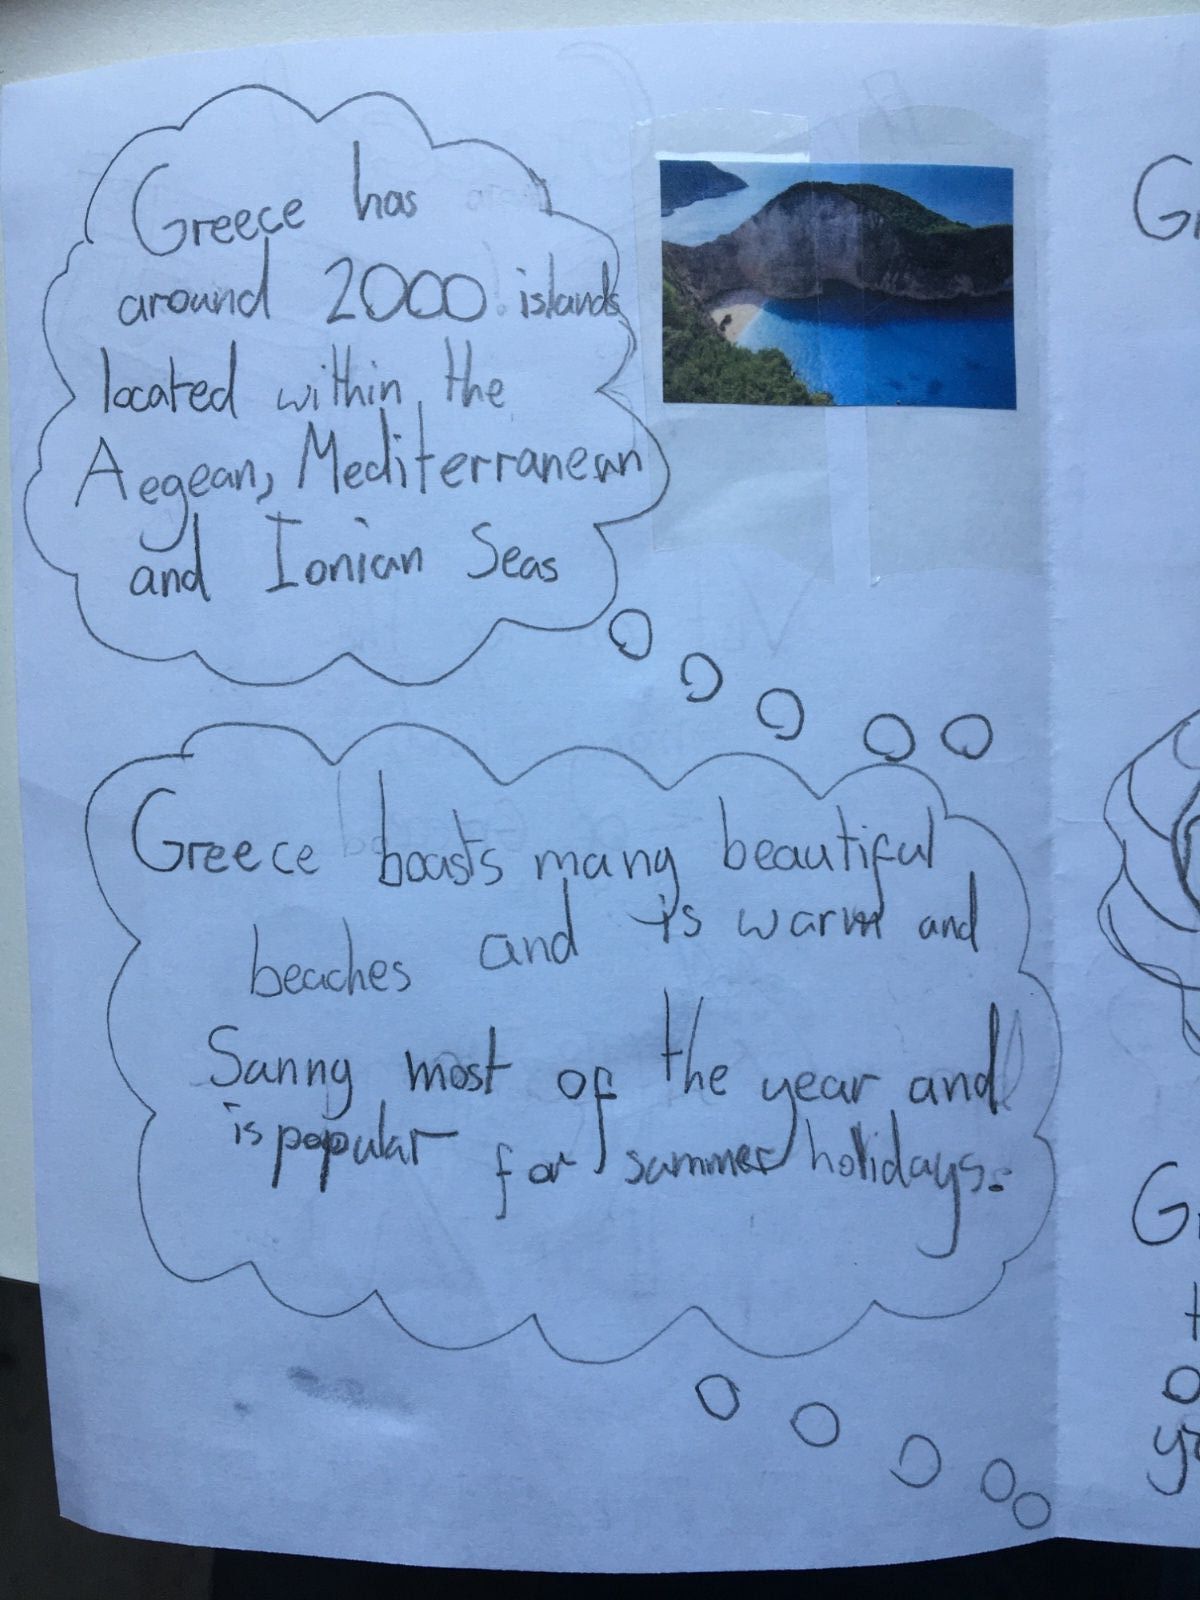 Greece has
around 2000 islands
located within the
Aegean, Mediterranean
and Ionian Seas
Greece boasts many beautiful
beaches and is warm and
Sunny most of the year and
is popular for summer holidays.
G
G
t
o
y